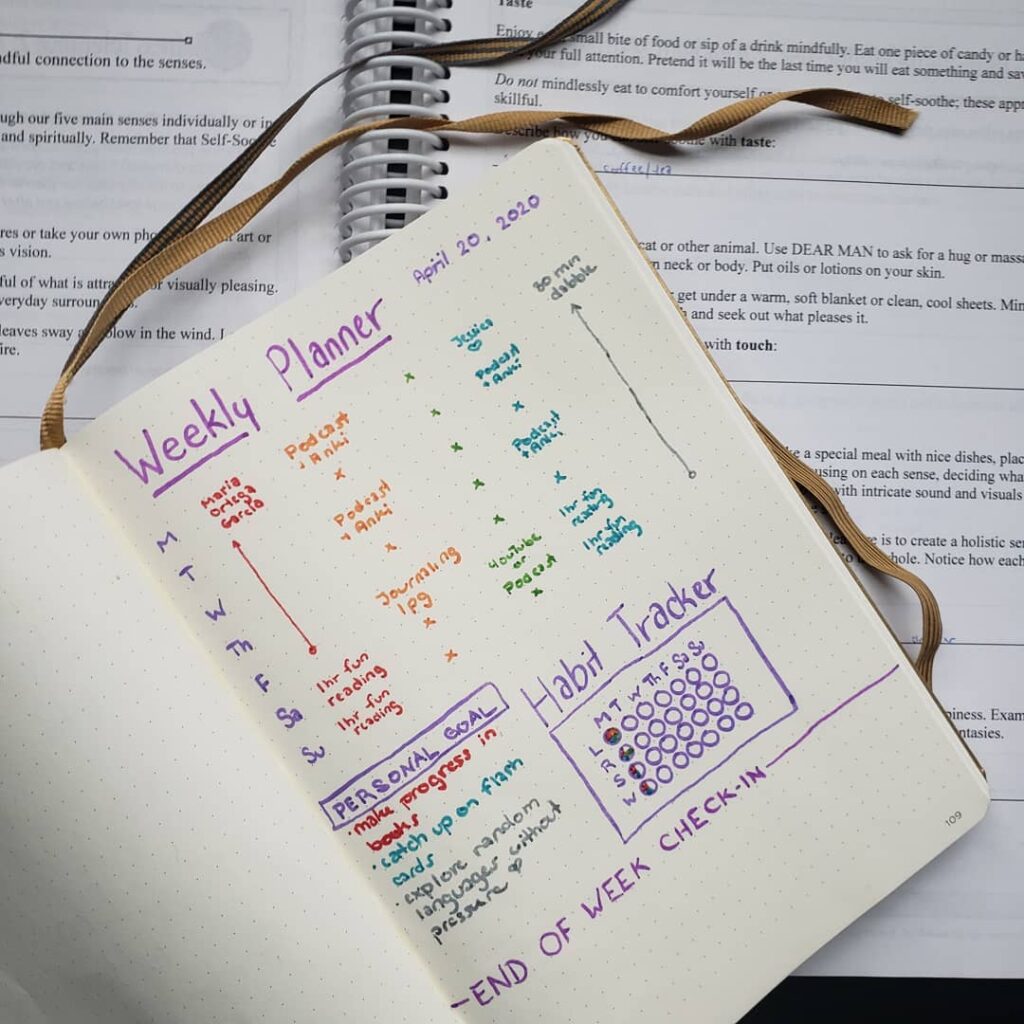 dful connection to the senses.
ugh our five main senses individually or in
and spiritually. Remember that Self-Soo
res or take your own pho art or
s vision.
ful of what is attra r visually pleasing.
veryday surroun
leaves sway blow in the wind. I
ire.
Taste
Enjoy small bite of food or sip of a drink mindfully. Eat one piece of candy or ha
your full attention. Pretend it will be the last time you will eat something and sav
Do not mindlessly eat to comfort yourself self-soothe; these app
skillful.
escribe how you e with taste:
coffee/tea
cat or other animal. Use DEAR MAN to ask for a hug or massa
n neck or body. Put oils or lotions on your skin.
get under a warm, soft blanket or clean, cool sheets. Min
and seek out what pleases it.
with touch:
e a special meal with nice dishes, plac
using on each sense, deciding wha
with intricate sound and visuals
is to create a holistic se
hole. Notice how each
piness. Exam
ntasies.
April 20, 2020
Weekly Planner
M
T
W
Th
F
Sa
Su
Maria
Ortega
Garcia
1hr fun
reading
1hr fun
reading
Podcast
+ Anki
x
Podcast
+ Anki
x
Journaling
1pg
x
x
x
x
x
x
x
YouTube
or
Podcast
x
Jessica
Podcast
+ Anki
x
Podcast
+ Anki
x
1hr fun
reading
1hr fun
reading
30 min
dabble
PERSONAL GOAL
• make progress in
books
• catch up on flash
cards
• explore random
languages without
pressure
Habit Tracker
M T W Th F Sa Su
L
R
S
W
END OF WEEK CHECK-IN
109